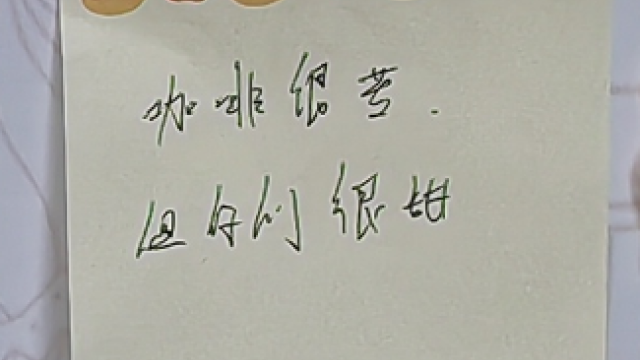 咖啡很苦.
但你们很甜